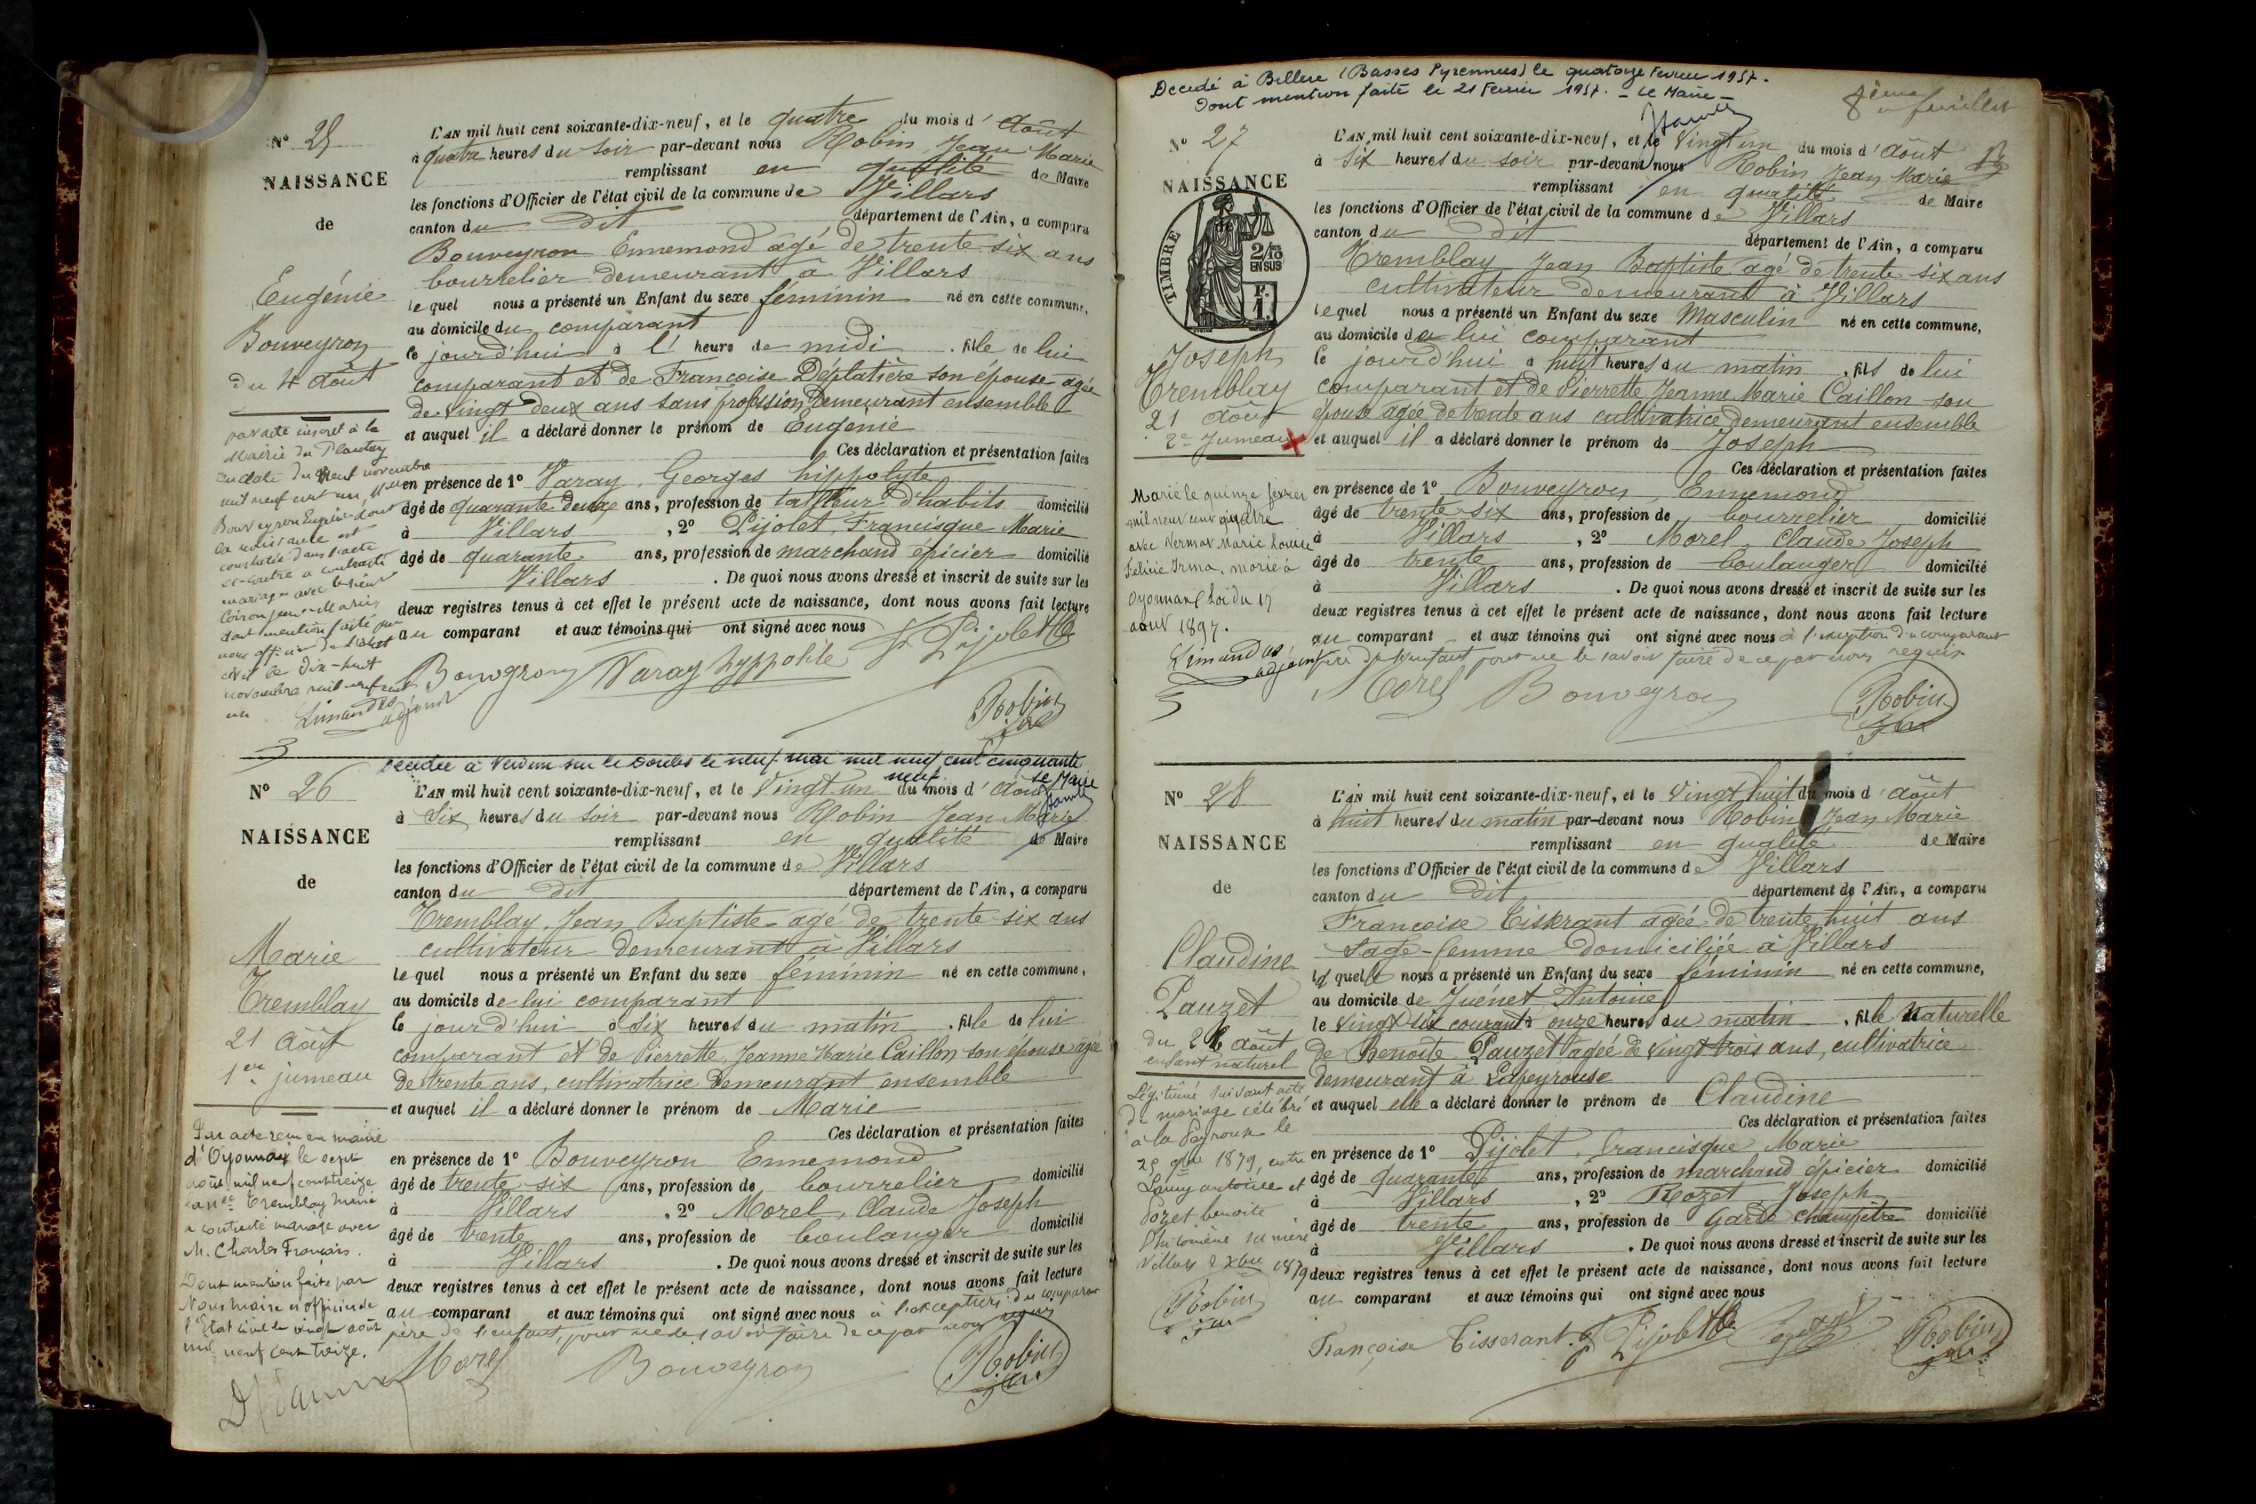 N° 25
NAISSANCE
de
Eugénie
Bouveyron
du 4 Août
par acte inscrit à la
Mairie du Plantay
en date du neuf novembre
mil neuf cent un Mlle
Bouveyron Eugénie dont
la naissance est
constatée dans l'acte
ci-contre a contracté
mariage avec le sieur
dont mention faite par
nous officier de l'état
civil le dix-huit
novembre mil neuf cent
un
Limandas
adjoint
L'AN mil huit cent soixante-dix-neuf, et le quatre du mois d'Août
à quatre heures du soir par-devant nous Robin Jean Marie
remplissant en qualité de Maire
les fonctions d'Officier de l'état civil de la commune de Villars
canton du dit département de l'Ain, a comparu
Bouveyron Ennemond agé de trente six ans
bourrelier demeurant à Villars
lequel nous a présenté un Enfant du sexe féminin né en cette commune,
au domicile du comparant
le jourd'hui à l' heure de midi . fille de lui
comparant et de Françoise Deplatière son épouse agée
de vingt deux ans sans profession demeurant ensemble
et auquel il a déclaré donner le prénom de Eugénie
Ces déclaration et présentation faites
en présence de 1° Varay Georges hippolyte
âgé de quarante deux ans, profession de tailleur d'habits domicilié
à Villars , 2° Pijolet Francisque Marie
âgé de quarante ans, profession de marchand épicier domicilié
Villars . De quoi nous avons dressé et inscrit de suite sur les
deux registres tenus à cet effet le présent acte de naissance, dont nous avons fait lecture
au comparant et aux témoins qui ont signé avec nous
Bouveyron Varay hyppolite Pijolet
Robin
Décédée à Verdun sur le Doubs le neuf mai mil neuf cent cinquante
neuf Le Maire
N° 26
NAISSANCE
de
Marie
Tremblay
21 Août
1er jumeau
Par acte reçu en mairie
d'Oyonnax le sept
août mil neuf cent treize
Tremblay Marie
a contracté mariage avec
M. Charles François.
Dont mention faite par
Nous maire et officier de
l'Etat civil le vingt août
mil neuf cent treize.
L'AN mil huit cent soixante-dix-neuf, et le Vingt un du mois d'Août
à Six heures du soir par-devant nous Robin Jean Marie
remplissant en qualité de Maire
les fonctions d'Officier de l'état civil de la commune de Villars
canton du dit département de l'Ain, a comparu
Tremblay Jean Baptiste agé de trente six ans
cultivateur demeurant à Villars
lequel nous a présenté un Enfant du sexe féminin né en cette commune,
au domicile de lui comparant
le jourd'hui à Six heures du matin . fille de lui
comparant et de Pierrette Jeanne Marie Caillon son épouse agée
de trente ans, cultivatrice demeurant ensemble
et auquel il a déclaré donner le prénom de Marie
Ces déclaration et présentation faites
en présence de 1° Bouveyron Ennemond
âgé de trente six ans, profession de bourrelier domicilié
à Villars , 2° Morel, Claude Joseph
âgé de trente ans, profession de boulanger domicilié
à Villars . De quoi nous avons dressé et inscrit de suite sur les
deux registres tenus à cet effet le présent acte de naissance, dont nous avons fait lecture
au comparant et aux témoins qui ont signé avec nous à l'exception du comparant
père de l'enfant, pour ne le savoir faire de ce par nous requis
Morel Bouveyron Robin
Décédé à Billere (Basses Pyrennees) le quatorze Fevrier 1957.
Dont mention faite le 21 Fevrier 1957. - Le Maire -
8ème feuillet
N° 27
NAISSANCE
de
TIMBRE
2/10
EN SUS
F.
1.
Joseph
Tremblay
21 Août
2e Jumeau
Marié le quinze février
mil neuf cent quatre
avec Vermot Marie Louise
Félicie Irma, mairie
Oyonnax Loi du 17
août 1897.
Limandas
adjoint
L'AN mil huit cent soixante-dix-neuf, et le Vingt un du mois d'Août
à Six heures du soir par-devant nous Robin Jean Marie
remplissant en qualité de Maire
les fonctions d'Officier de l'état civil de la commune de Villars
canton du dit département de l'Ain, a comparu
Tremblay Jean Baptiste agé de trente six ans
cultivateur demeurant à Villars
lequel nous a présenté un Enfant du sexe Masculin né en cette commune,
au domicile de lui comparant
le jourd'hui à huit heures du matin . fils de lui
comparant et de Pierrette Jeanne Marie Caillon son
épouse agée de trente ans cultivatrice demeurant ensemble
et auquel il a déclaré donner le prénom de Joseph
Ces déclaration et présentation faites
en présence de 1° Bouveyron Ennemond
âgé de trente six ans, profession de bourrelier domicilié
à Villars , 2° Morel Claude Joseph
âgé de trente ans, profession de boulanger domicilié
à Villars . De quoi nous avons dressé et inscrit de suite sur les
deux registres tenus à cet effet le présent acte de naissance, dont nous avons fait lecture
au comparant et aux témoins qui ont signé avec nous à l'exception du comparant
père de l'enfant pour ne le savoir faire de ce par nous requis
Morel Bouveyron Robin
N° 28
NAISSANCE
de
Claudine
Pauzet
du 26 Août
enfant naturel
Légitimé suivant acte
de mariage célébré
à la Peyrouse le
25 9bre 1879, entre
antoine et
benoite
Villars 2 Xbre 1879
Robin
L'AN mil huit cent soixante-dix-neuf, et le Vingt huit du mois d'Août
à huit heures du matin par-devant nous Robin Jean Marie
remplissant en qualité de Maire
les fonctions d'Officier de l'état civil de la commune de Villars
canton du dit département de l'Ain, a comparu
Françoise Tisserant agée de trente huit ans
Sage-femme domiciliée à Villars
laquelle nous a présenté un Enfant du sexe féminin né en cette commune,
au domicile de Juénet Antoine
le vingt six courant à onze heures du matin . fille Naturelle
de Benoite Pauzet agée de vingt trois ans, cultivatrice
demeurant à Lapeyrouse
et auquel elle a déclaré donner le prénom de Claudine
Ces déclaration et présentation faites
en présence de 1° Pijolet, Francisque Marie
âgé de quarante ans, profession de marchand épicier domicilié
à Villars , 2° Rozet Joseph
âgé de trente ans, profession de Garde champêtre domicilié
à Villars . De quoi nous avons dressé et inscrit de suite sur les
deux registres tenus à cet effet le présent acte de naissance, dont nous avons fait lecture
au comparant et aux témoins qui ont signé avec nous
Françoise Tisserant Pijolet Rozet Robin